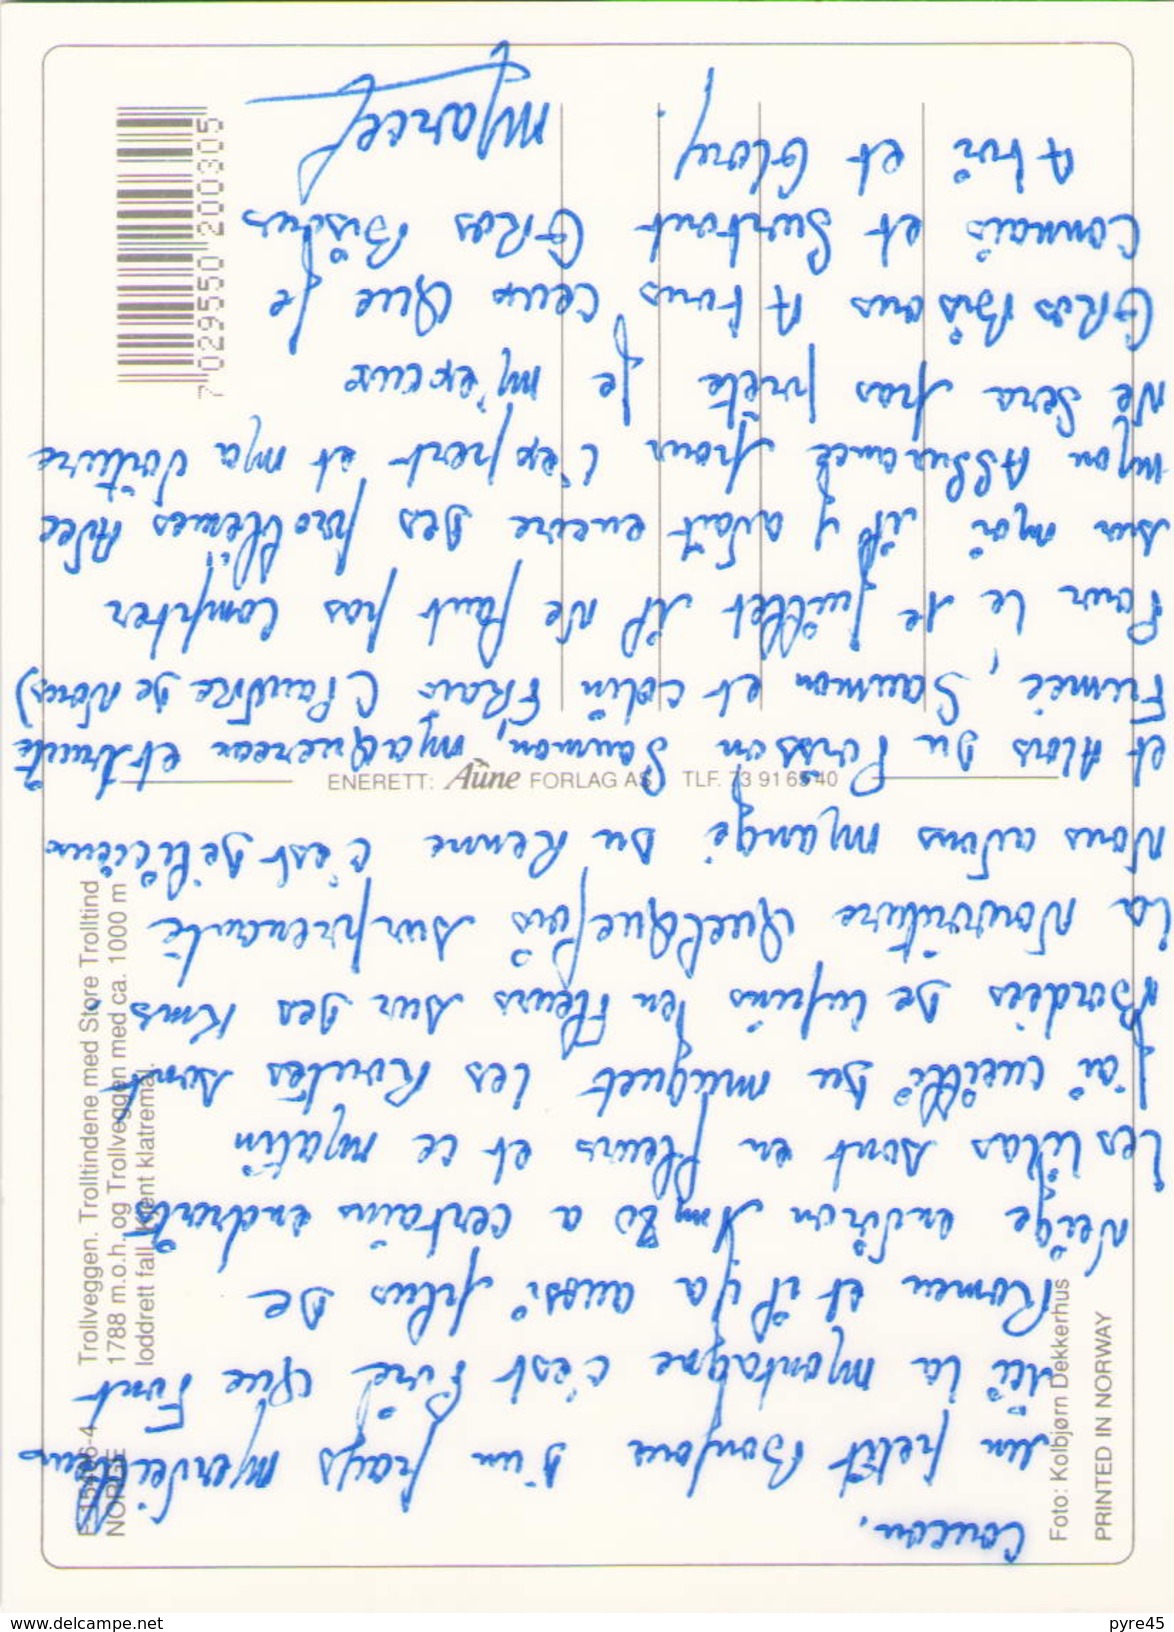 Coucou,
un petit Bonjour d'un pays merveilleux
ici la montagne c'est
Romen et il y a aussi plus de
Neige environ 1m80 a certains endroits
Les lilas sont en fleurs et ce matin
j'ai cueilli du muguet Les Routes sont
Bordées de lupins en fleurs sur des Kms
La Nourriture Quelquefois surprenante
Nous avons mangé du Renne c'est délicieux
et Alors du Poisson Saumon, maquereau et truite
Fumée, Saumon et colin Frais (Pauvre de Nous)
Pour le 1e juillet il Ne faut pas compter
sur moi il y avait encore des problèmes Avec
mon Assurance pour l'expert et ma voiture
Ne sera pas prete je m'excuse
GRos Bisous A tous ceux Que je
Connais et Surtout GRos Bisous
A toi et Glory.
Marcel
7 029550 200305
ENERETT: Aune FORLAG AS TLF. 73 91 65 40
Trollveggen. Trolltindene med Store Trolltind
1788 m.o.h. og Trollveggen med ca. 1000 m
loddrett fall. Kjent klatremål.
NORGE
Foto: Kolbjørn Dekkerhus
PRINTED IN NORWAY
www.delcampe.net
pyre45